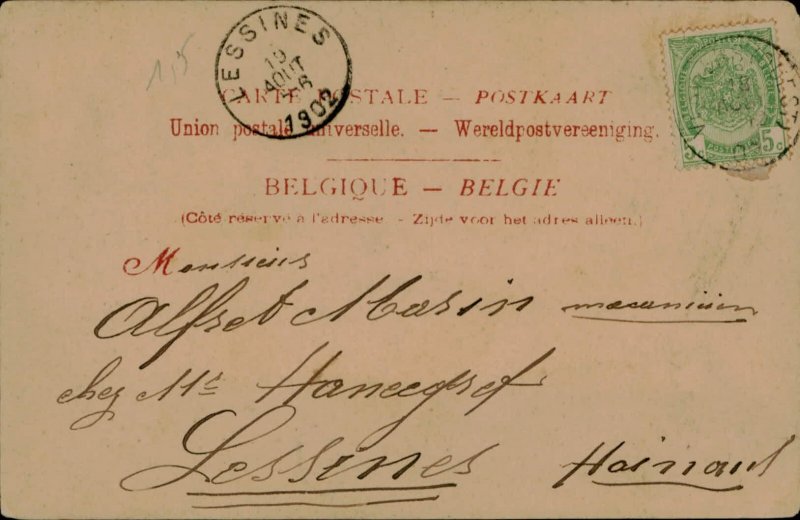 1,5
LESSINES
19
AOUT
1902
CARTE POSTALE — POSTKAART
Union postale universelle. — Wereldpostvereeniging.
BELGIQUE — BELGIE
(Côté réservé à l'adresse. - Zijde voor het adres alleen.)
Monsieur
Alfret Marin mecanicien
chez Mr
Lessines Hainaut
5 c